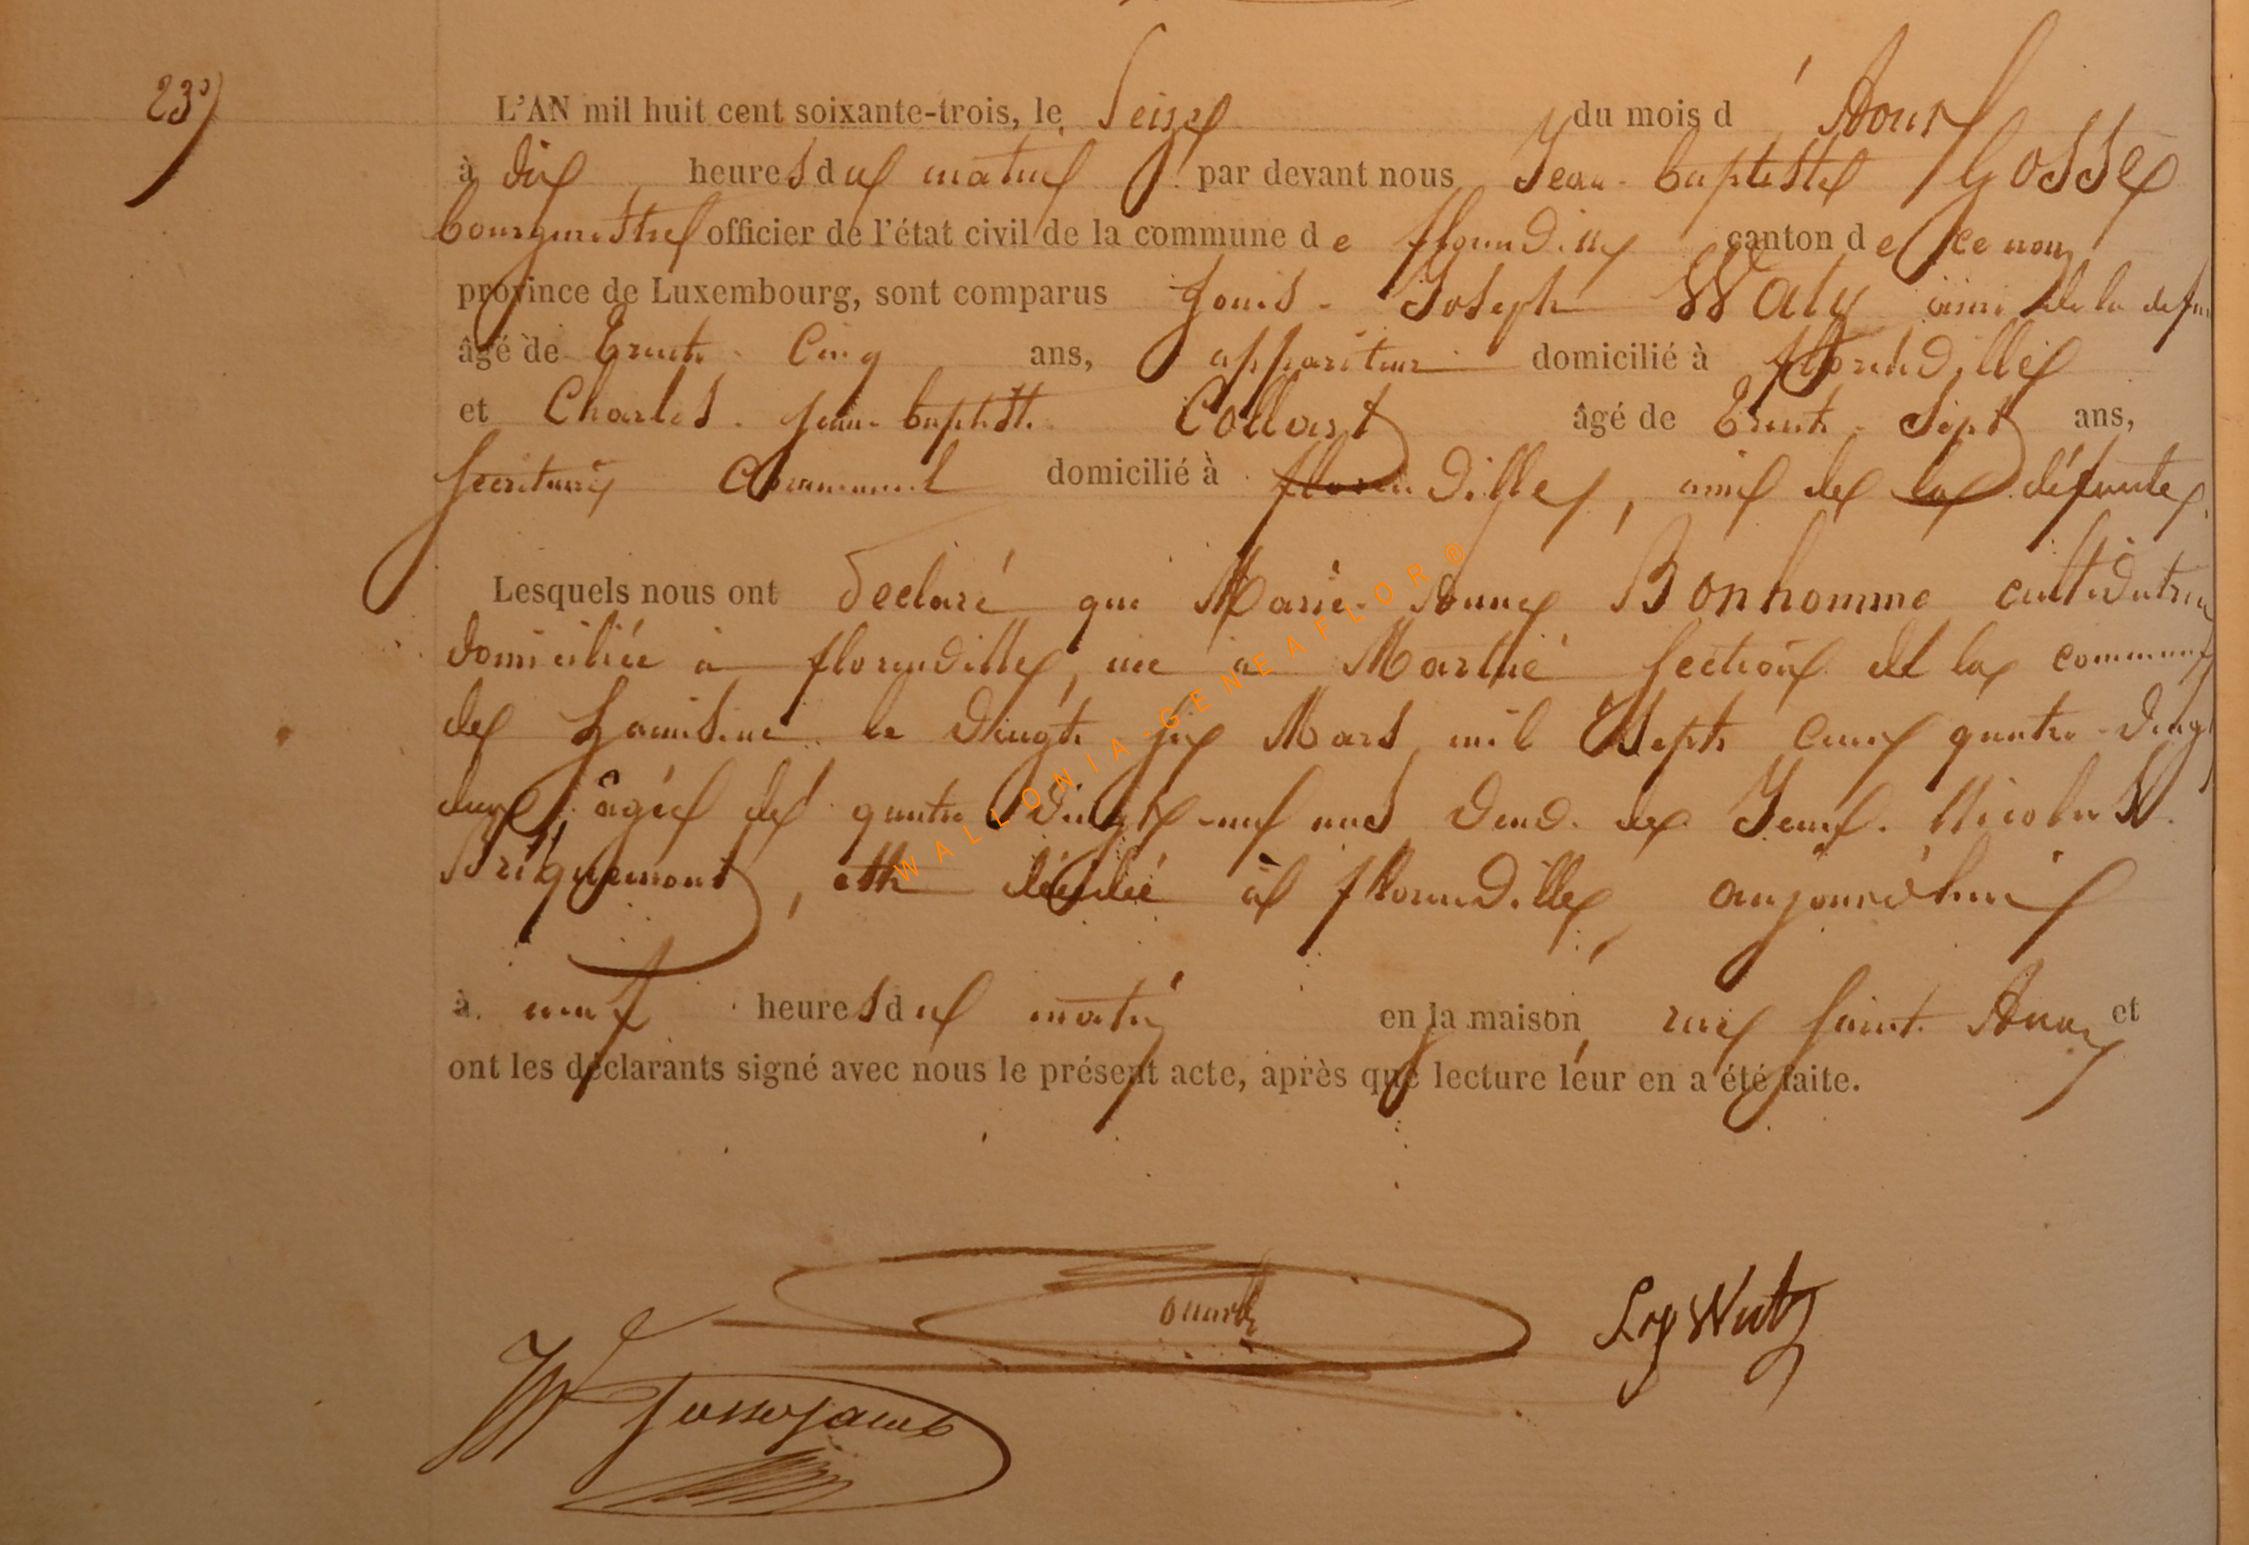 23)
L'AN mil huit cent soixante-trois, le Seize du mois d'Aout
à dix heures du matin par devant nous Jean-baptiste Gosse
bourgmestre officier de l'état civil de la commune de florenville canton de ce nom
province de Luxembourg, sont comparus Louis-Joseph ami de la
âgé de trente-Cinq ans, appariteur domicilié à florenville
et Charles-jean-baptiste Collart âgé de trente-Sept ans,
secrétaire Communal domicilié à florenville, ami de la défunte,
Lesquels nous ont déclaré que Marie-Jeanne Bonhomme cultivatrice
domiciliée à florenville, née à Martué section de la commune
de Lacuisine le vingt-six Mars mil Sept cent quatre-vingt
âgée de quatre vingt ans veuve de Jean-Nicolas
Briquemont, est décédée à florenville, aujourd'hui
à neuf heures du matin en la maison, rue Saint-Anne et
ont les déclarants signé avec nous le présent acte, après que lecture leur en a été faite.
WALLONIA-GENEAFLOR®